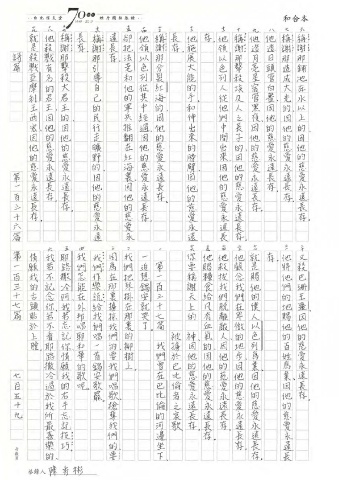 和合本
70
稱謝那鋪地在水上的因他的慈愛永遠長存。
稱謝那造成大光的因他的慈愛永遠長存。
他造日頭管白晝因他的慈愛永遠長存。
他造月亮星宿管黑夜因他的慈愛永遠長存。
稱謝那擊殺埃及人之長子的因他的慈愛永遠長存。
他領以色列人從他們中間出來因他的慈愛永遠
長存。
他施展大能的手和伸出來的膀臂因他的慈愛永遠
長存。
稱謝那分裂紅海的因他的慈愛永遠長存。
他領以色列從其中經過因他的慈愛永遠長存。
卻把法老和他的軍兵推翻在紅海裏因他的慈愛永
遠長存。
稱謝那引導自己的民行走曠野的因他的慈愛永遠
長存。
稱謝那擊殺大君王的因他的慈愛永遠長存。
他殺戮有名的君王因他的慈愛永遠長存。
就是殺戮亞摩利王西宏因他的慈愛永遠長存。
詩篇 第一百三十六篇
又殺巴珊王噩因他的慈愛永遠長存。
他將他們的地賜他的百姓為業因他的慈愛永遠長
存。
就是賜他的僕人以色列為業因他的慈愛永遠長存。
他顧念我們在卑微的地步因他的慈愛永遠長存。
他救拔我們脫離敵人因他的慈愛永遠長存。
他賜糧食給凡有血氣的因他的慈愛永遠長存。
你們要稱謝天上的神因他的慈愛永遠長存。
被擄於巴比倫者之哀歌
第一百三十七篇 我們曾在巴比倫的河邊坐下
一追想錫安就哭了。
我們把琴掛在那裏的柳樹上
因為在那裏擄掠我們的要我們唱歌搶奪我們的要
我們作樂說給我們唱一首錫安歌罷。
我們怎能在外邦唱耶和華的歌呢。
耶路撒冷阿我若忘記你情願我的右手忘記技巧。
我若不記念你若不看耶路撒冷過於我所最喜樂的
情願我的舌頭貼於上膛
第一百三十七篇 七百五十九